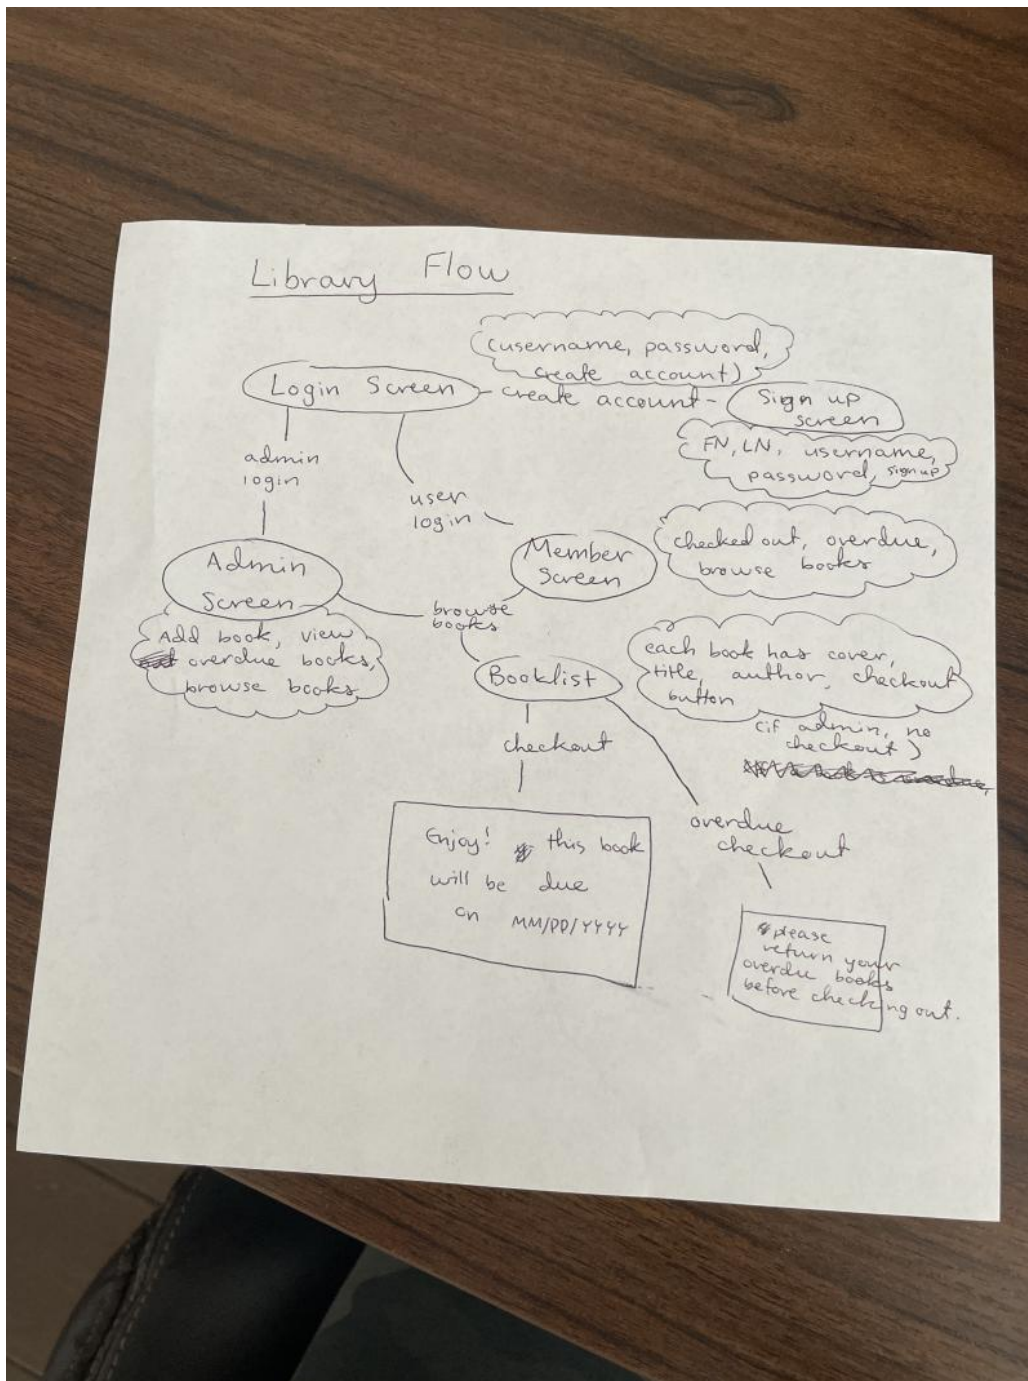 Library Flow
(username, password,
create account)
Login Screen
create account
Sign up
screen
FN, LN, username,
password, sign up
admin
login
user
login
Admin
Screen
Member
Screen
checked out, overdue,
browse books
browse
books
Add book, view
overdue books,
browse books
Booklist
each book has cover,
title, author, checkout
button
(if admin, no
checkout)
checkout
overdue
checkout
Enjoy! this book
will be due
on MM/DD/YYYY
please
return your
overdue books
before checking out.